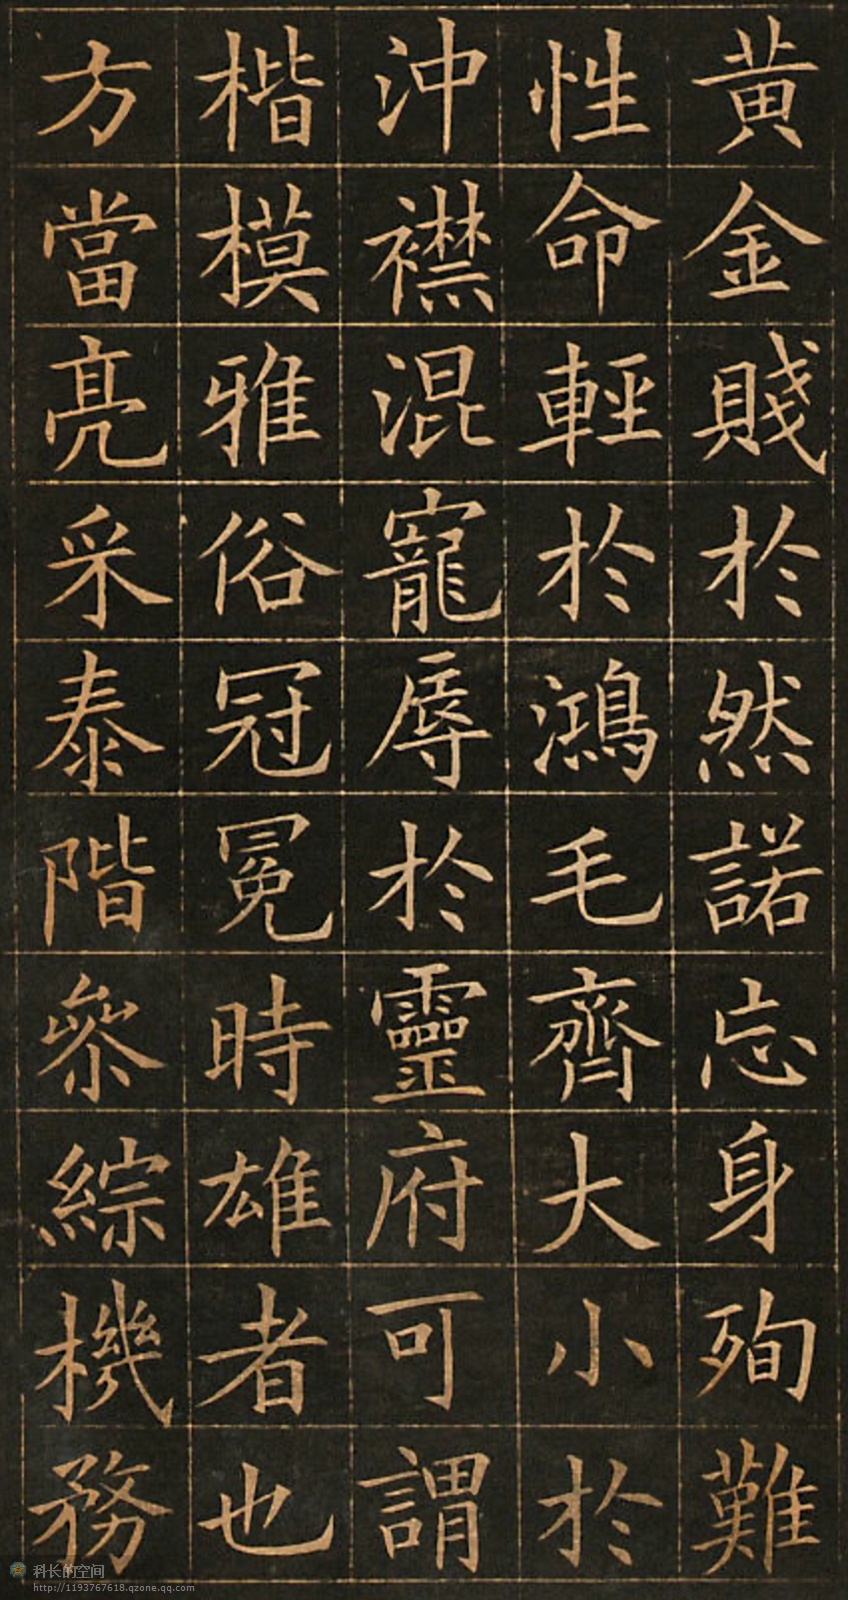 黄金賤於然諾忘身殉難
性命輕於鴻毛齊大小於
沖襟混寵辱於靈府可謂
楷模雅俗冠冕時雄者也
方當亮采泰階參綜機務
科长的空间
http://1193767618.qzone.qq.com